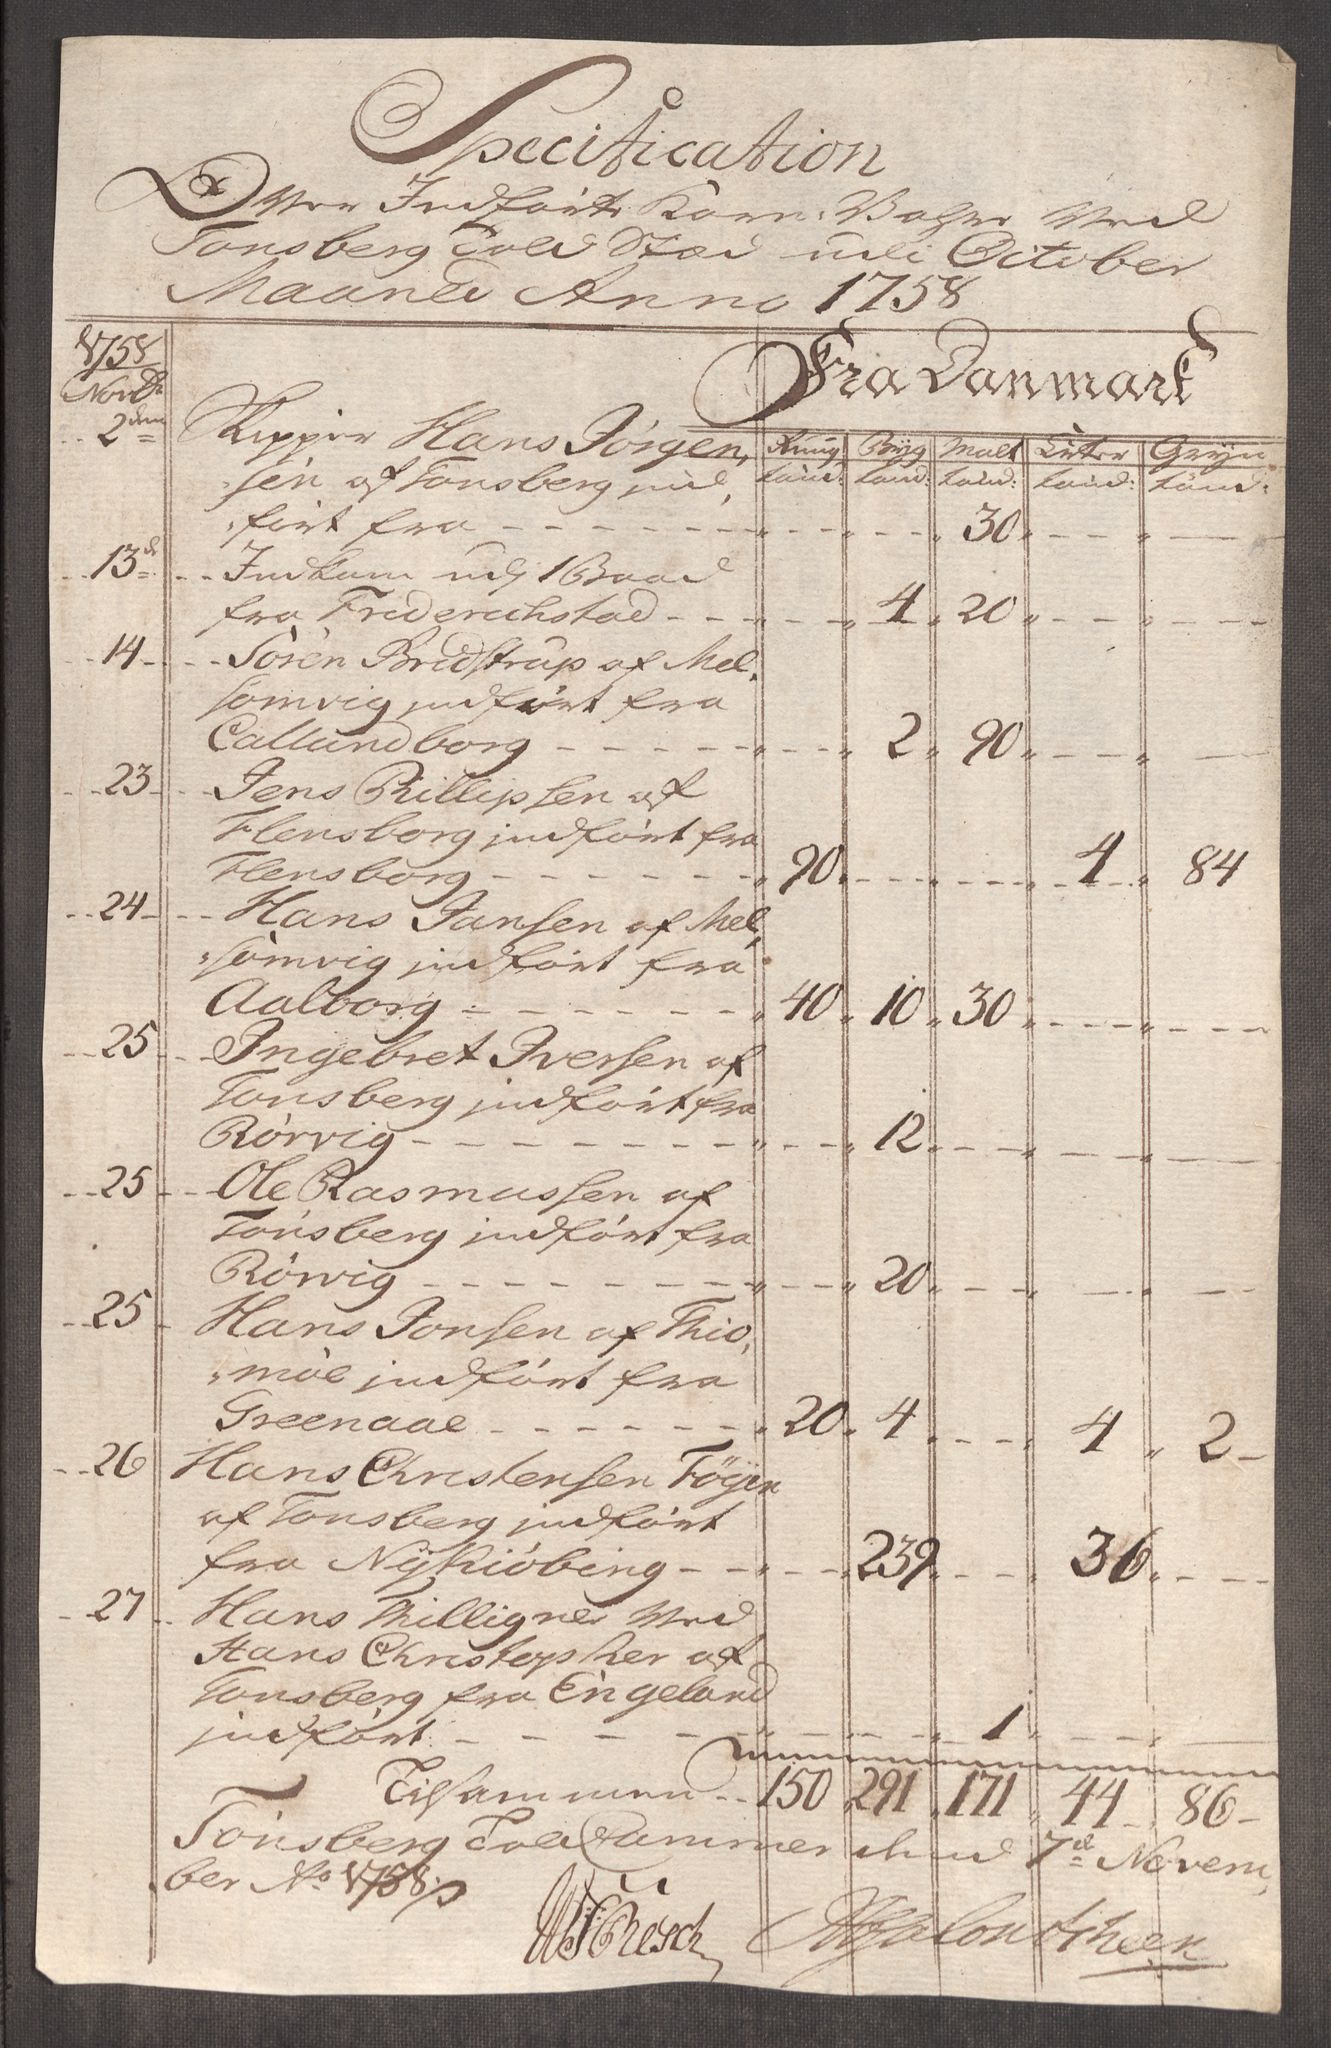 Specification
Over Indførte Korn Vahrer Ved
Tonsberg Told Sted udi October
Maaned Anno 1758
Fra Danmark
1758
Novbr
Rüug Bÿg Malt Erter Grÿn
tønd: tønd: tønd: tønd: tønd:
2den Skipper Hans Jørgen,
sen af Tonsberg ind,
ført fra 30
13d Indkom udj 1 Baad
fra Friderichstad 4 20
14 Sören Bredstrup af Mel,
somvig indført fra
Callundborg 2 90
23 Jens Phillipsen af
Flensborg indført fra
Flensborg 90 4 84
24 Hans Jansen af Mel,
somvig indført fra
Aalborg 40 10 30
25 Ingebret Iversen af
Tonsberg indført fra
Rörvig 12
25 Ole Rasmussen af
Tönsberg indført fra
Rörvig 20
25 Hans Jonsen af Thio,
möe indført fra
Greenaae 20 4 4 2
26 Hans Christensen Föyen
af Tonsberg indført
fra Nÿkiöbing 239 36
27 Hans Thilligner Ved
Hans Christopher af
Tonsberg fra Engeland
indført 1
Tilsammen 150 291 171 44 86
Tönsberg Told Cammer d 7d Novem,
ber Ao 1758